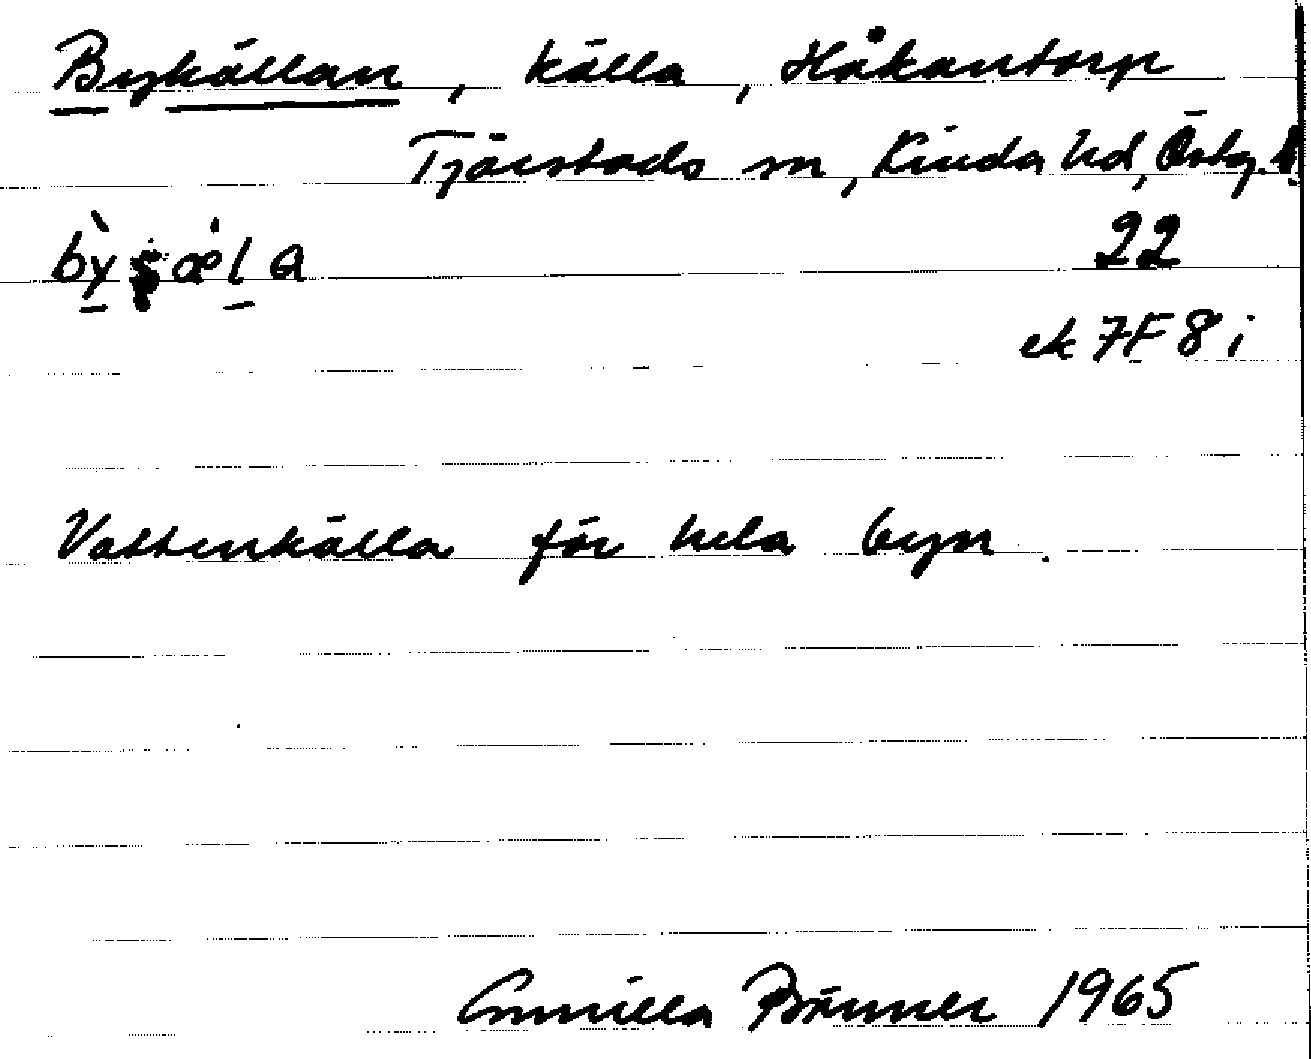 Bykällan, källa, Håkantorp
Tjärstads sn, Kinda hd, Östg. l.
by̠ ʂæl̠a
22
ek 7F 8 i
Vattenkälla för hela byn.
Gunilla Brünner 1965